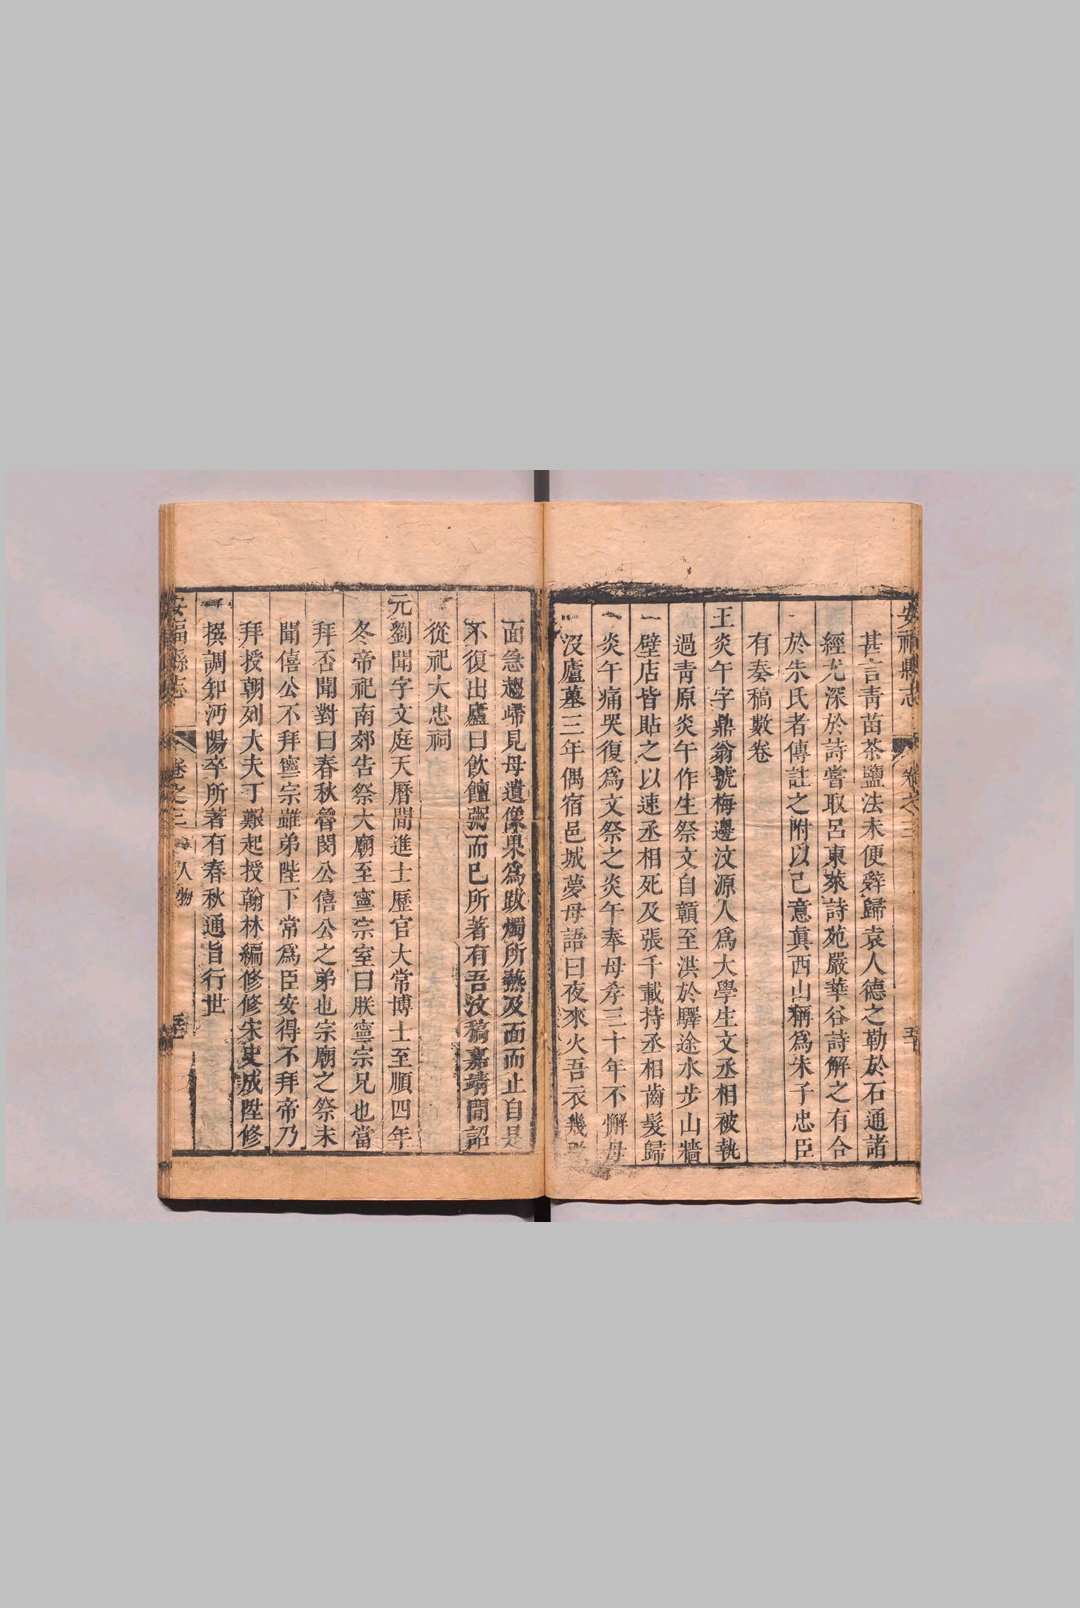 安福縣志 卷之三
甚言靑苗茶鹽法未便辭歸袁人德之勒於石通諸
經尤深於詩嘗取呂東萊詩苑嚴華谷詩解之有合
於朱氏者傳註之附以己意眞西山稱爲朱子忠臣
有奏稿數卷
王炎午字鼎翁號梅邊汶源人爲大學生文丞相被執
過靑原炎午作生祭文自贛至洪於驛途水步山牆
壁店皆貼之以速丞相死及張千載持丞相齒髮歸
炎午痛哭復爲文祭之炎午奉母孝三十年不懈母
沒廬墓三年偶宿邑城夢母語曰夜來火吾衣幾
面急趨歸見母遺像果爲跋燭所爇及面而止自是
不復出廬日飲饘粥而已所著有吾汶稿嘉靖間詔
從祀大忠祠
元劉聞字文庭天曆間進士歷官大常博士至順四年
冬帝祀南郊告祭大廟至寧宗室曰朕寧宗兄也當
拜否聞對曰春秋魯閔公僖公之弟也宗廟之祭未
聞僖公不拜寧宗雖弟陛下常爲臣安得不拜帝乃
拜授朝列大夫丁艱起授翰林編修修宋史成陞修
撰調知沔陽卒所著有春秋通旨行世
安福縣志 卷之三 人物